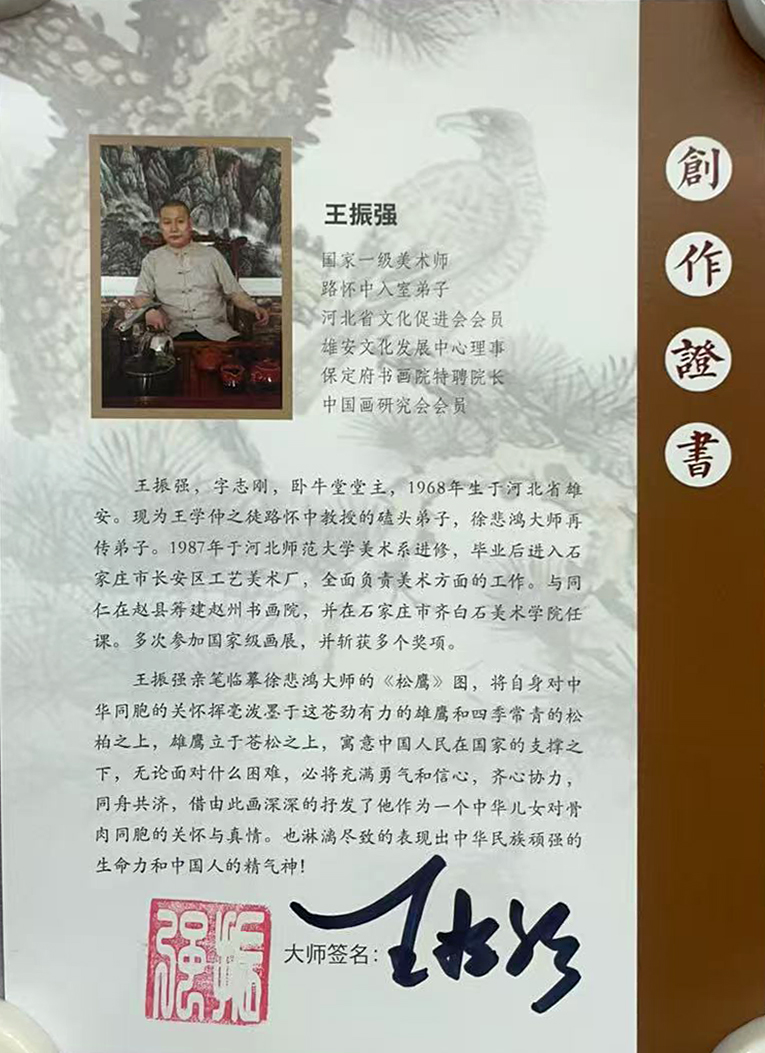 創作證書
王振强
国家一级美术师
路怀中入室弟子
河北省文化促进会会员
雄安文化发展中心理事
保定府书画院特聘院长
中国画研究会会员
王振强，字志刚，卧牛堂堂主，1968年生于河北省雄
安。现为王学仲之徒路怀中教授的磕头弟子，徐悲鸿大师再
传弟子。1987年于河北师范大学美术系进修，毕业后进入石
家庄市长安区工艺美术厂，全面负责美术方面的工作。与同
仁在赵县筹建赵州书画院，并在石家庄市齐白石美术学院任
课。多次参加国家级画展，并斩获多个奖项。
王振强亲笔临摹徐悲鸿大师的《松鹰》图，将自身对中
华同胞的关怀挥毫泼墨于这苍劲有力的雄鹰和四季常青的松
柏之上，雄鹰立于苍松之上，寓意中国人民在国家的支撑之
下，无论面对什么困难，必将充满勇气和信心，齐心协力，
同舟共济，借由此画深深的抒发了他作为一个中华儿女对骨
肉同胞的关怀与真情。也淋漓尽致的表现出中华民族顽强的
生命力和中国人的精气神！
大师签名：王振强
振强